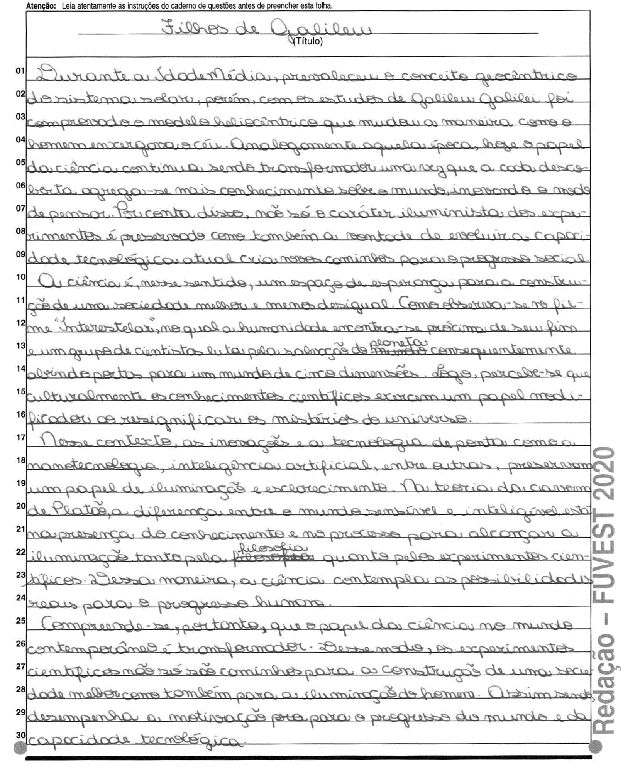 Atenção: Leia atentamente as instruções do caderno de questões antes de preencher esta folha.
Filhos de Galileu
(Título)
01 Durante a Idade Média, prevaleceu o conceito geocêntrico
02 do sistema solar, porém, com os estudos de Galileu Galilei foi
03 comprovado o modelo heliocêntrico que mudou a maneira como o
04 homem enxergava o céu. Analogamente aquela época, hoje o papel
05 da ciência continua sendo transformador uma vez que a cada desco-
06 berta agrega-se mais conhecimento sobre o mundo, inovando o modo
07 de pensar. Por conta disso, não só o caráter iluminista dos expe-
08 rimentos é preservado como também a vontade de evoluir a capaci-
09 dade tecnológica atual cria novos caminhos para o progresso social.
10 A ciência é, nesse sentido, um espaço de esperança para a constru-
11 ção de uma sociedade melhor e menos desigual. Como observa-se no fil-
12 me "Interestelar", no qual a humanidade encontra-se próxima de seu fim
13 e um grupo de cientistas luta pela salvação do mundo planeta consequentemente
14 abrindo portas para um mundo de cinco dimensões. Logo, percebe-se que
15 culturalmente os conhecimentos científicos exercem um papel modi-
16 ficador ao resignificar os mistérios do universo.
17 Nesse contexto, as inovações e a tecnologia de ponta como a
18 nanotecnologia, inteligência artificial, entre outras, preservam
19 um papel de iluminação e esclarecimento. Na teoria da caverna
20 de Platão, a diferença entre o mundo sensível e inteligível está
21 na presença do conhecimento e no processo para alcançar a
22 iluminação tanto pela filosofia quanto pelos experimentos cien-
23 tíficos. Dessa maneira, a ciência contempla as possibilidades
24 reais para o progresso humano.
25 Compreende-se, portanto, que o papel da ciência no mundo
26 contemporâneo é transformador. Desse modo, os experimentos
27 científicos não só são caminhos para a construção de uma socie-
28 dade melhor como também para a iluminação do homem. Assim sendo
29 desempenha a motivação pra para o progresso do mundo e da
30 capacidade tecnológica.
Redação – FUVEST 2020